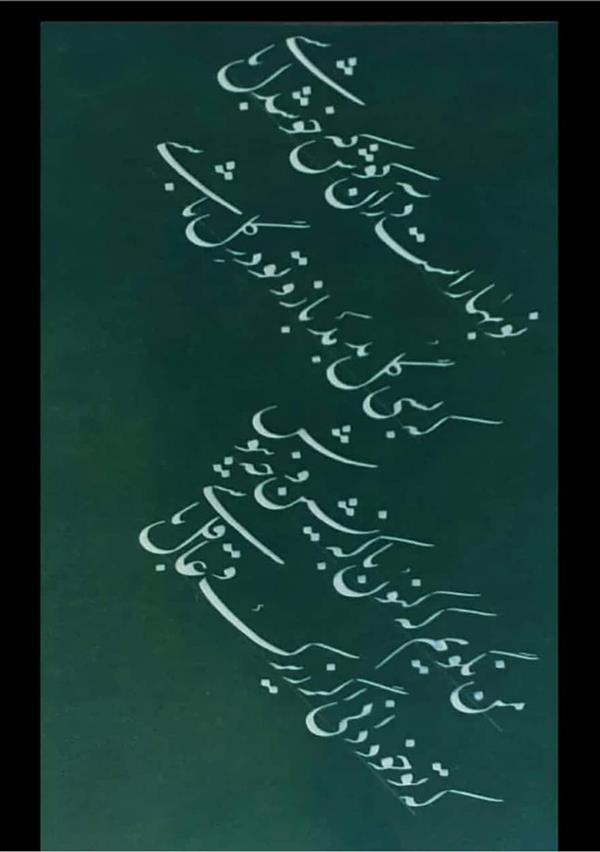 نوبهار است در آن کوش که خوشدل باشی
که بسی گل بدمد باز و تو در گل باشی
من نگویم که کنون با که نشین و چه بنوش
که تو خود دانی اگر زیرک و عاقل باشی